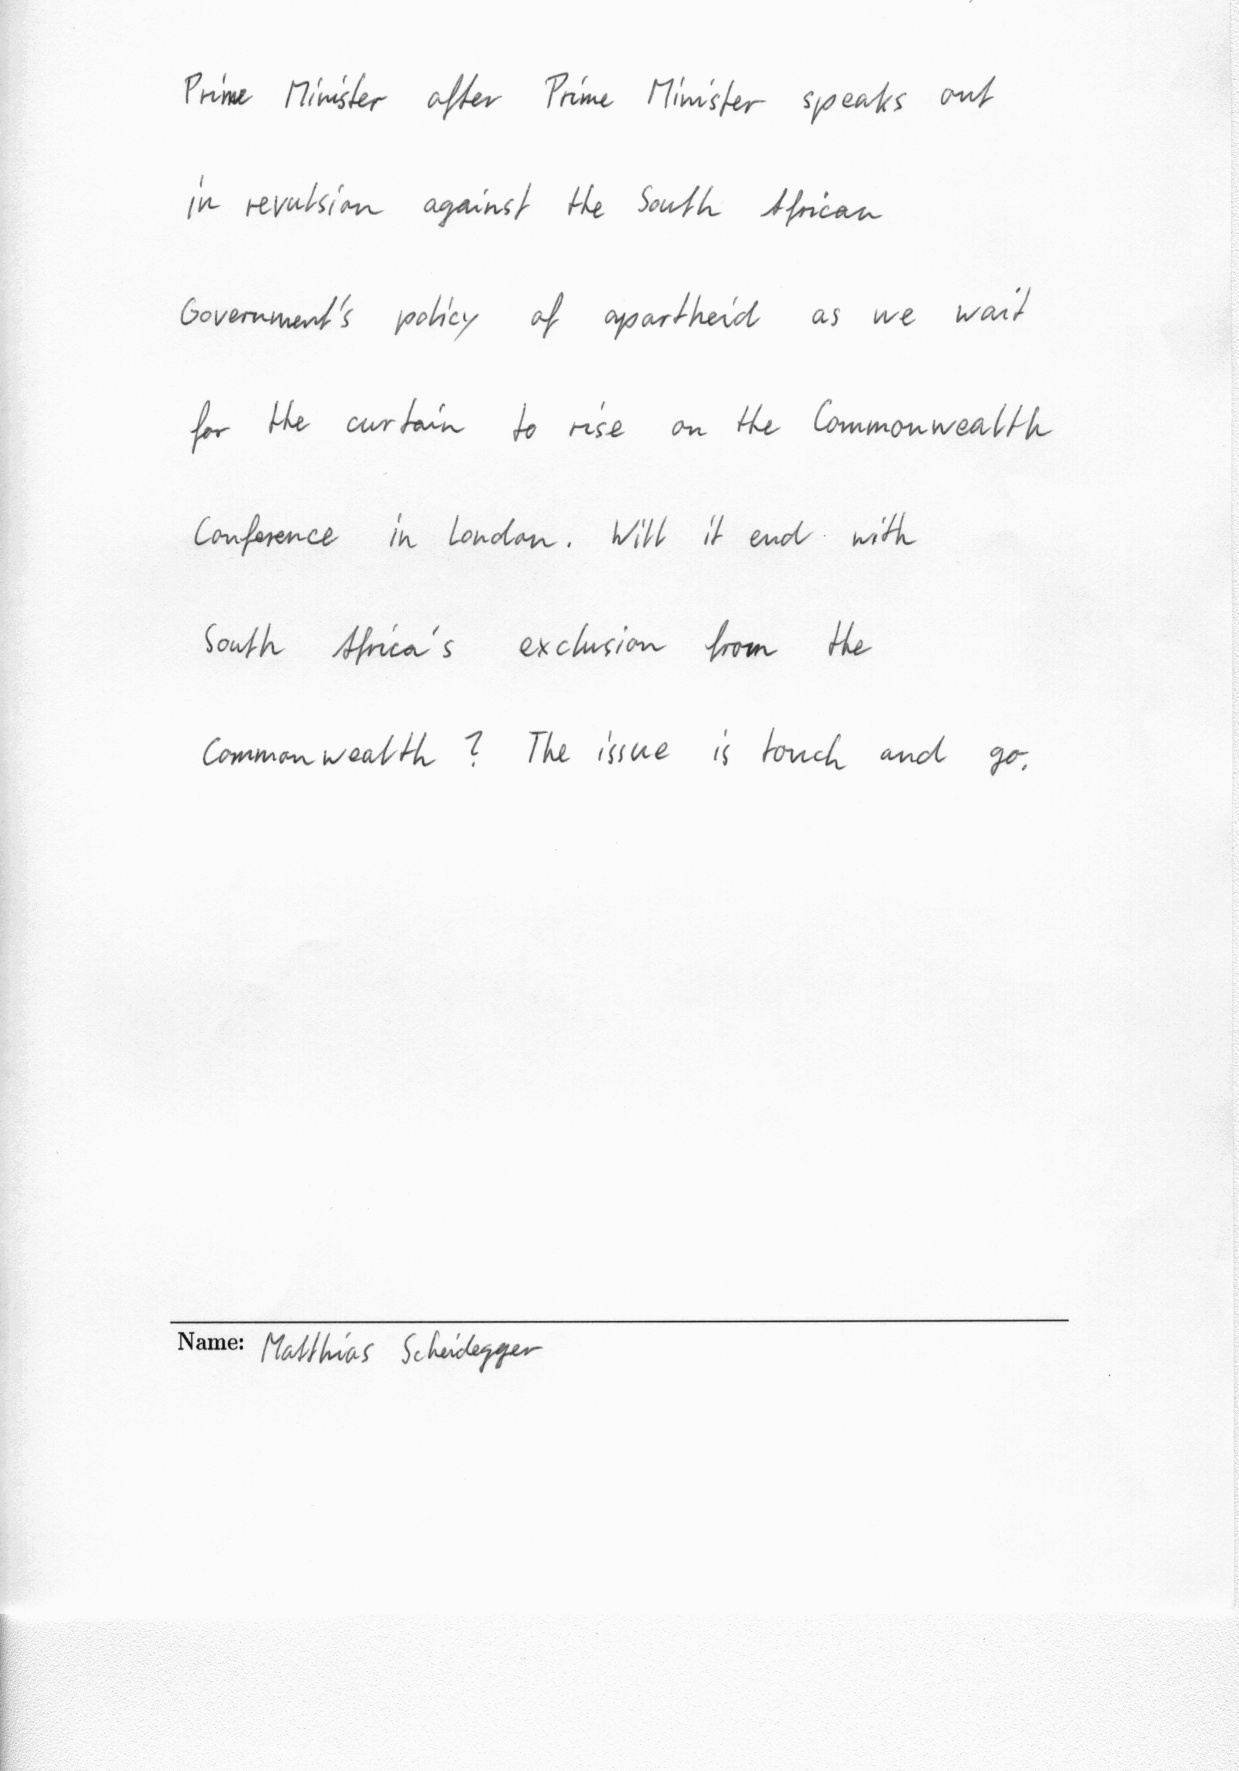 Prime Minister after Prime Minister speaks out
in revulsion against the South African
Government's policy of apartheid as we wait
for the curtain to rise on the Commonwealth
Conference in London. Will it end with
South Africa's exclusion from the
Commonwealth? The issue is touch and go.
Name: Matthias Scheidegger